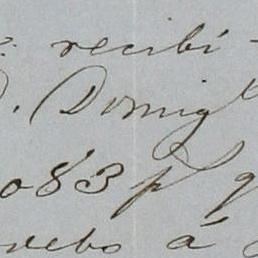 recibí
D. Doming
083 ps q
á